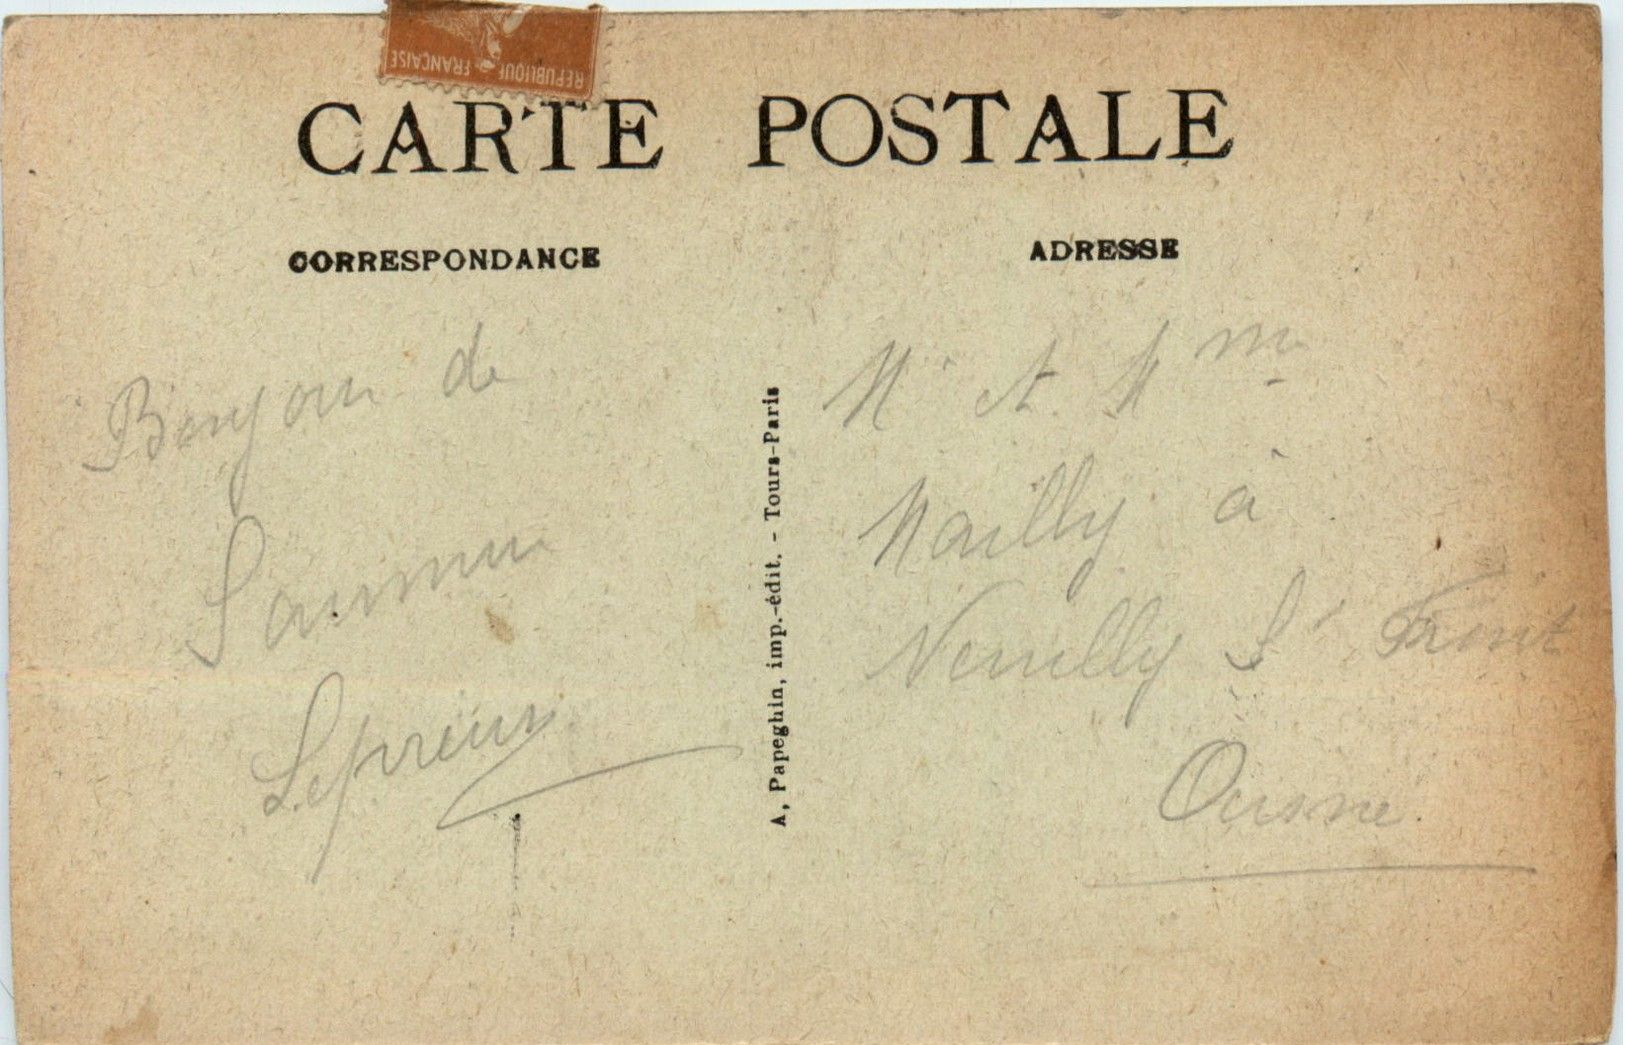 REPUBLIQUE FRANÇAISE
CARTE POSTALE
CORRESPONDANCE
Bonjour de
Saumur
Lepreux
A. Papeghin, imp.-édit. - Tours-Paris
ADRESSE
Mr et Mme
Mailly à
Neuilly St Front
Aisne